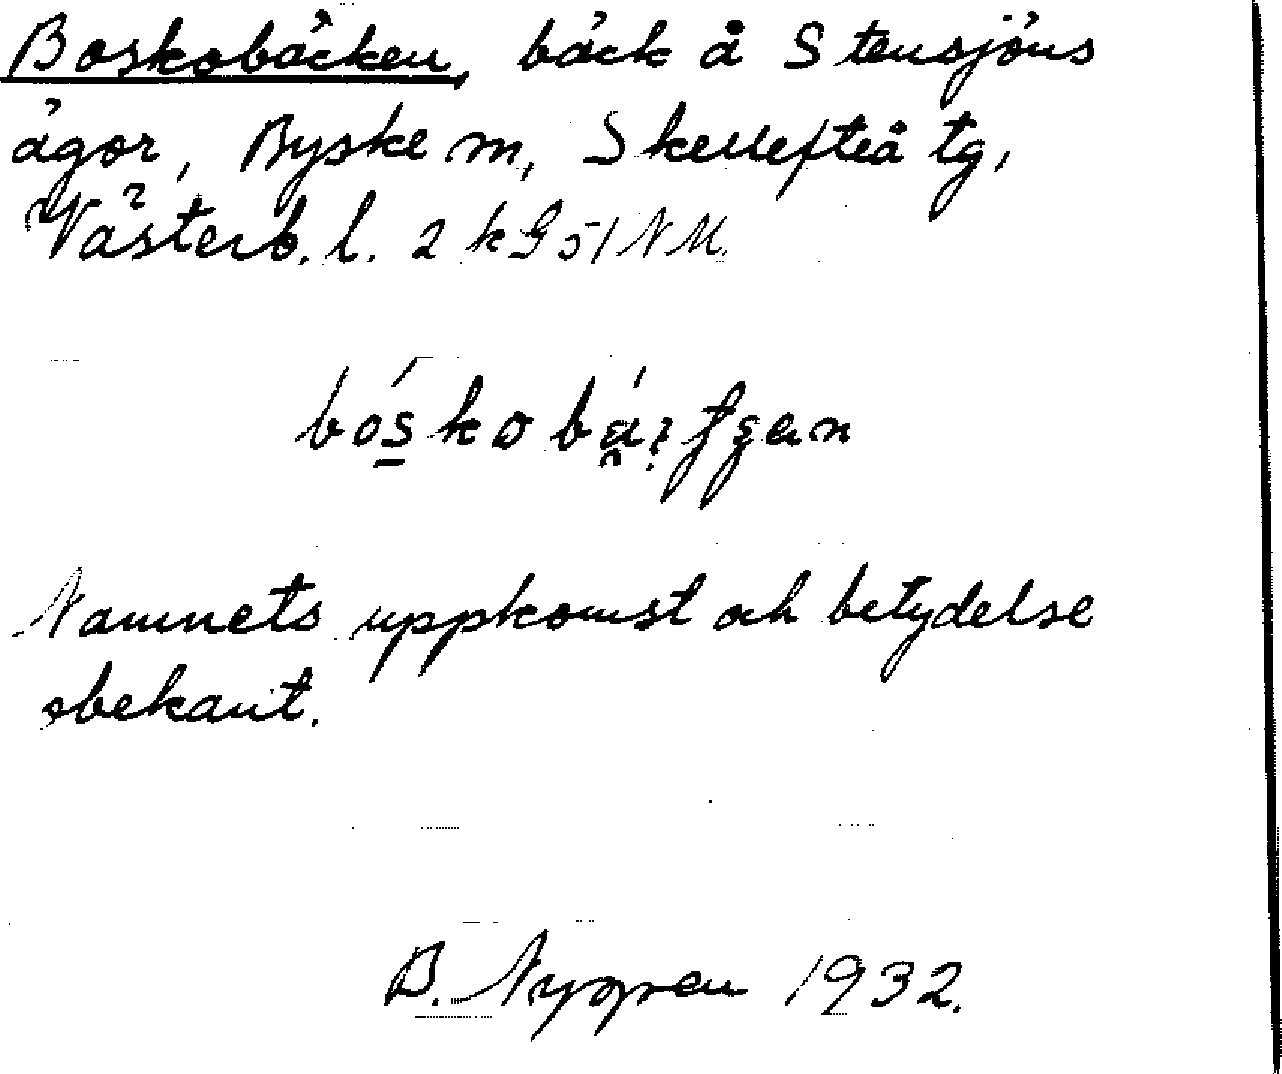 Boskobäcken, bäck å Stensjöns
ägor, Byske sn, Skellefteå tg,
Västerb. l. 2 kG 51 NM.
Namnets uppkomst och betydelse
obekant.
B. Nygren 1932.